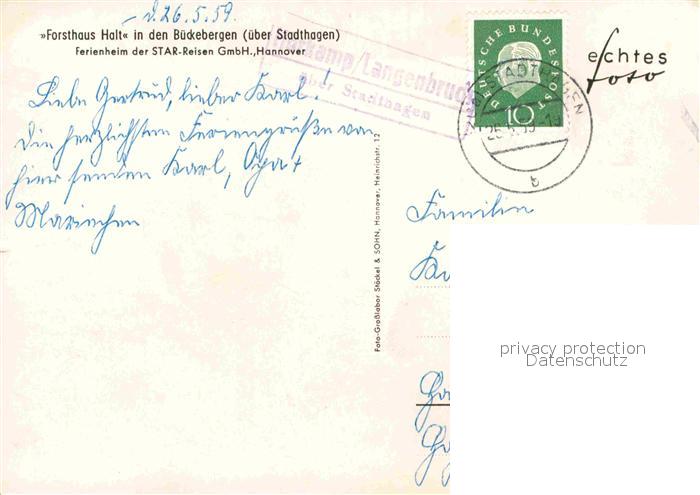 d. 26.5.59.
»Forsthaus Halt« in den Bückebergen (über Stadthagen)
Ferienheim der STAR-Reisen GmbH., Hannover
kamp/Langenbruch
über Stadthagen
DEUTSCHE BUNDESPOST
10
STADTHAGEN
26.5.59
b
echtes
foto
Liebe Gertrud, lieber Karl!
Die herzlichsten Feriengrüße von
hier senden Karl, Opa +
Mariechen
Foto-Großlabor Stöckel & SOHN, Hannover, Heinrichstr. 12
Familie
privacy protection
DB Warburg